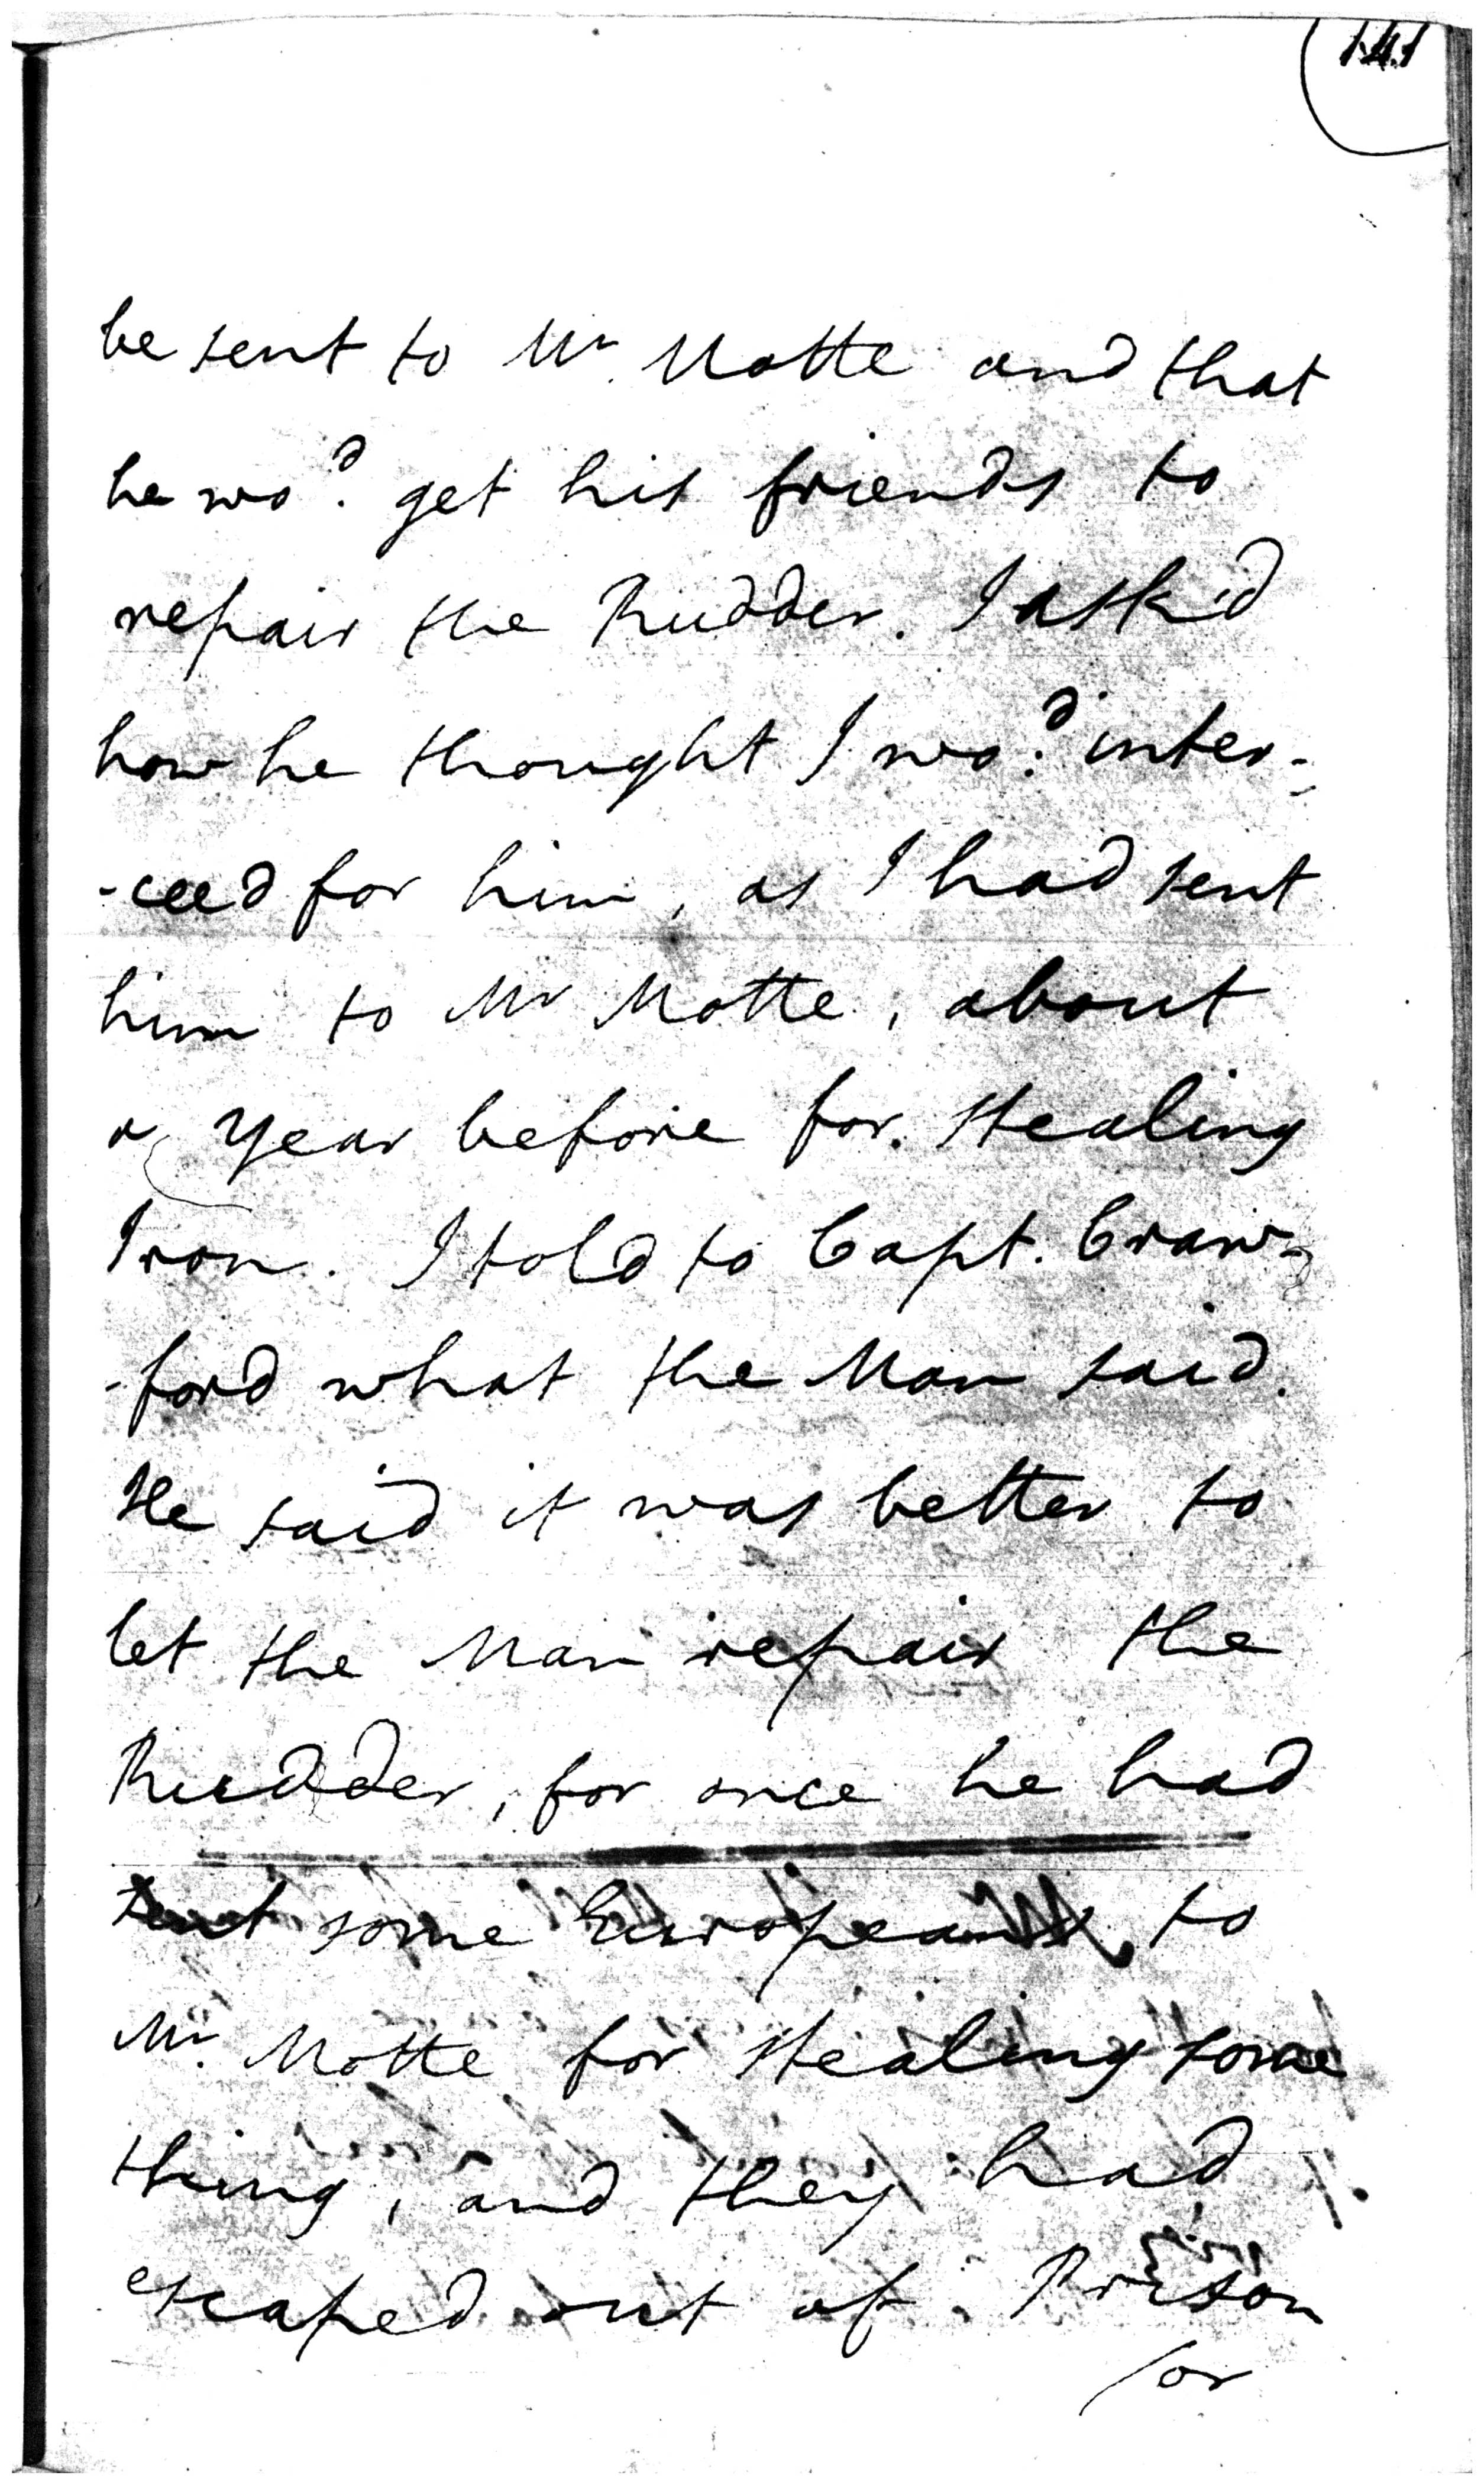 141
be sent to Mr. Motte and that
he wo.d get his friends to
repair the Rudder. I ask'd
how he thought I wo.d inter-
-ceed for him, as I had sent
him to Mr Motte, about
a Year before for stealing
Iron. I told to Capt. Craw-
-ford what the Man said.
He said it was better to
let the Man repair the
Rudder, for once he had
sent some Europeans to
Mr. Motte for stealing some
thing, and they had
escaped out of Prison
/or